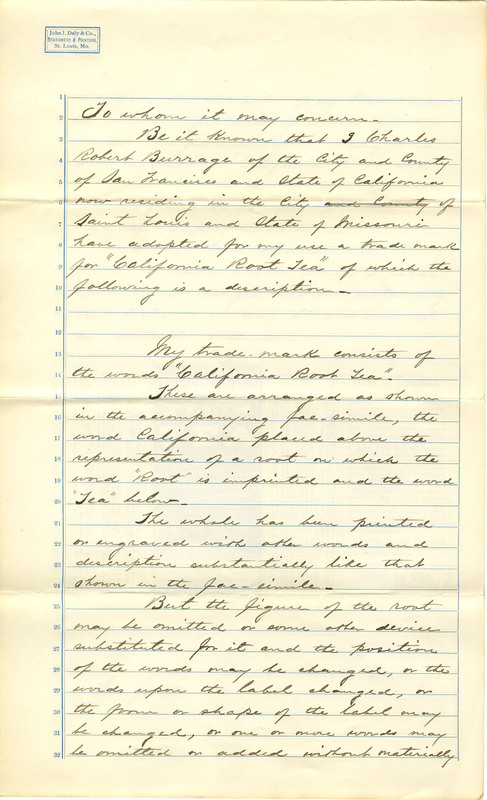 John J. Daly & Co.,
Stationers & Printers,
St. Louis, Mo.
1
2 To whom it may concern.
3 Be it known that I Charles
4 Robert Burrage of the City and County
5 of San Francisco and State of California
6 now residing in the City and County of
7 Saint Louis and State of Missouri
8 have adopted for my use a trade mark
9 for "California Root Tea" of which the
10 following is a description.
11
12
13 My trade-mark consists of
14 the words "California Root Tea".
15 These are arranged as shown
16 in the accompanying fac-simile, the
17 word California placed above the
18 representation of a root on which the
19 word "Root" is imprinted and the word
20 "Tea" below.
21 The whole has been printed
22 or engraved with other words and
23 description substantially like that
24 shown in the fac-simile.
25 But the figure of the root
26 may be omitted or some other device
27 substituted for it and the position
28 of the words may be changed, or the
29 words upon the label changed, or
30 the from or shape of the label may
31 be changed, or one or more words may
32 be omitted or added without materially